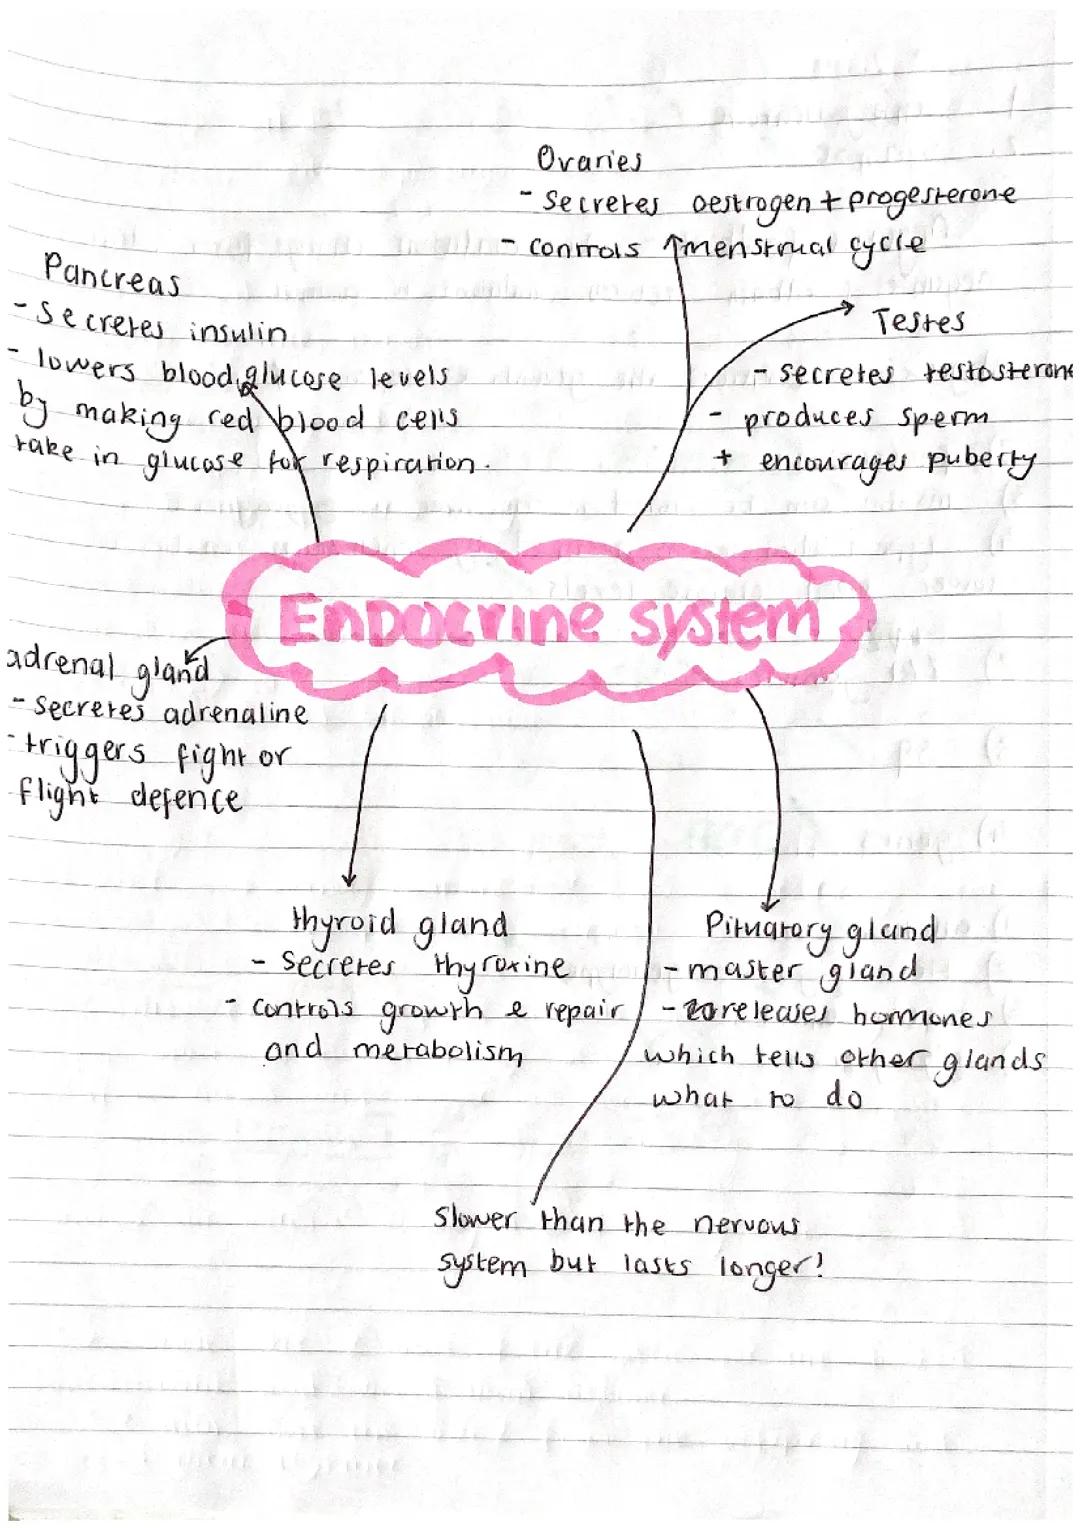 Ovaries
- Secretes oestrogen + progesterone
- controls menstrual cycle
Pancreas
- Secretes insulin
- lowers blood glucose levels
by making red blood cells
take in glucose for respiration.
Testes
- secretes testosterone
- produces sperm
+ encourages puberty
Endocrine system
adrenal gland
- secretes adrenaline
- triggers fight or
flight defence
thyroid gland
- Secretes thyroxine
- controls growth & repair
and metabolism
Pituatory gland
- master gland
- releases hormones
which tells other glands
what to do
Slower than the nervous
system but lasts longer!